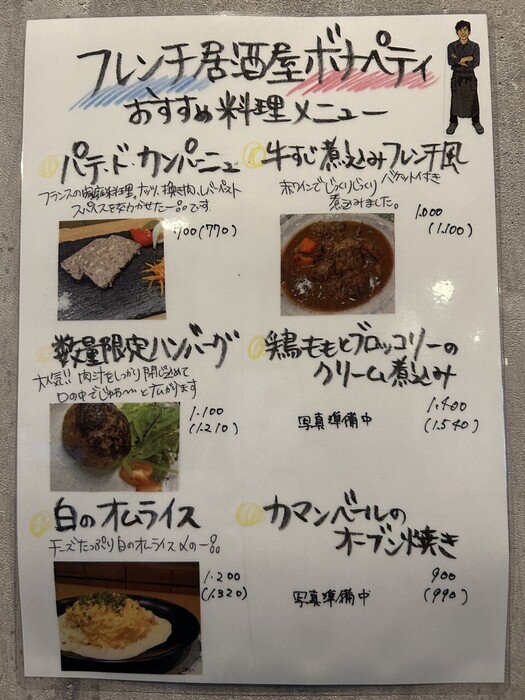 フレンチ居酒屋ボナペティ
おすすめ料理メニュー
パテ・ド・カンパーニュ
フランスの家庭料理。ナッツ、挽き肉、レバーペースト
スパイスを交わせた一品です
700(770)
牛すじ煮込みフレンチ風
バケット付き
赤ワインでじっくりじっくり
煮込みました。
1.000
(1.100)
数量限定ハンバーグ
大人気!! 肉汁をしっかり閉じ込めて
口の中でじゅわ〜っと広がります
1.100
(1.210)
鶏ももとブロッコリーの
クリーム煮込み
写真準備中
1.400
(1.540)
白のオムライス
チーズたっぷり白のオムライス〆の一品
1.200
(1.320)
カマンベールの
オーブン焼き
写真準備中
900
(990)